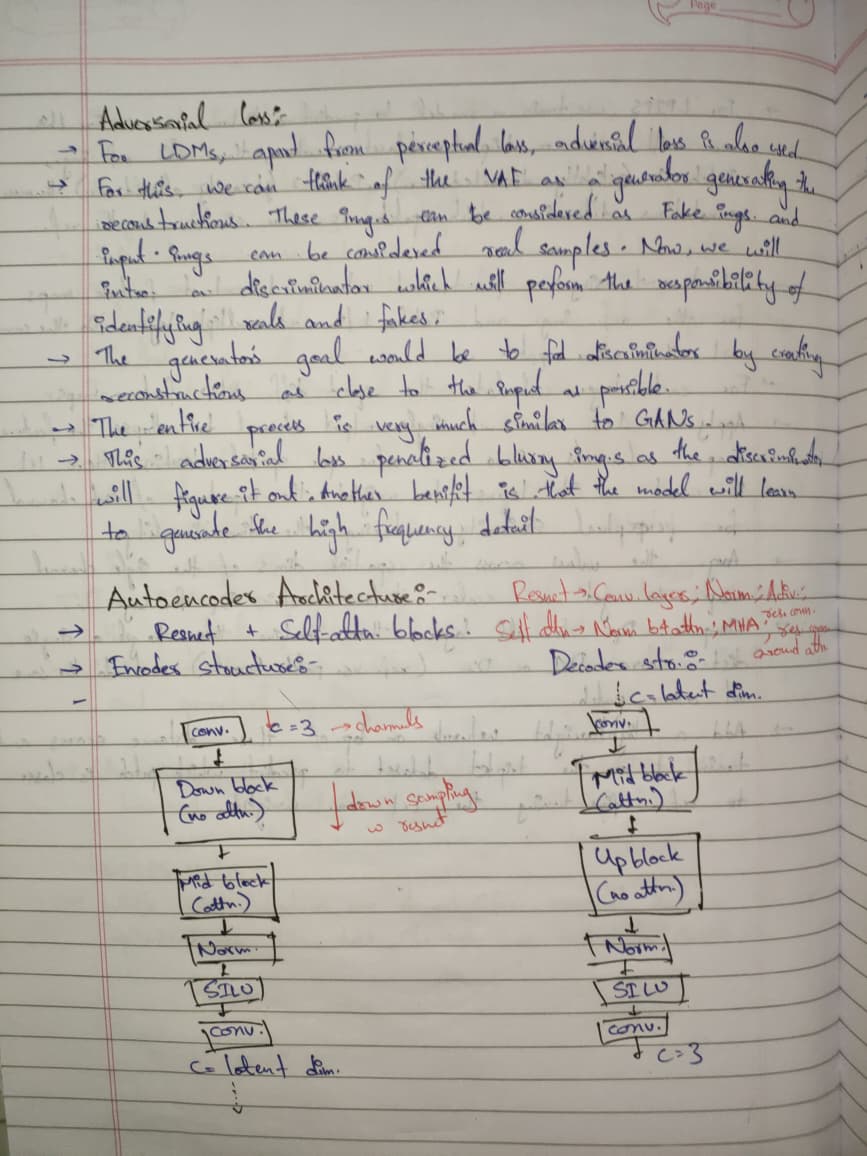 Page
Adversarial loss:-
→ For LDMs, apart from perceptual loss, adversial loss is also used.
→ For this, we can think of the VAE as a generator generating the
reconstructions. These imgs can be considered as Fake imgs. and
input imgs can be considered real samples. Now, we will
intro. a discriminator which will perform the responsibility of
identifying reals and fakes.
→ The generator's goal would be to fool discriminator by creating
reconstructions as close to the input as possible.
→ The entire process is very much similar to GANs.
→ This adversarial loss penalized blurry imgs as the discriminator
will figure it out. Another benifit is that the model will learn
to generate the high frequency detail
Autoencoder Architecture:-
Resnet → Conv layers; Norm; Activ; res. conn.
→ Resnet + Self-attn. blocks.
Self attn → Norm b4 attn; MHA; res conn around attn
→ Encoder structure:-
Decoder str.:-
-
↓ C = latent dim.
conv.
C = 3 → channels
conv.
Down block
(no attn.)
↓ down sampling
w resnet
Mid block
(attn.)
Mid block
(attn.)
Up block
(no attn.)
Norm.
Norm.
SILU
SILU
conv.
conv.
C = latent dim.
C = 3